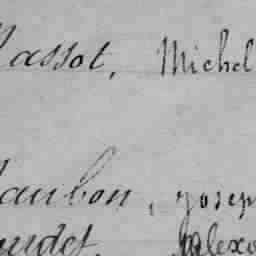 assot, Michel
aubon, josep
oudet, alexa